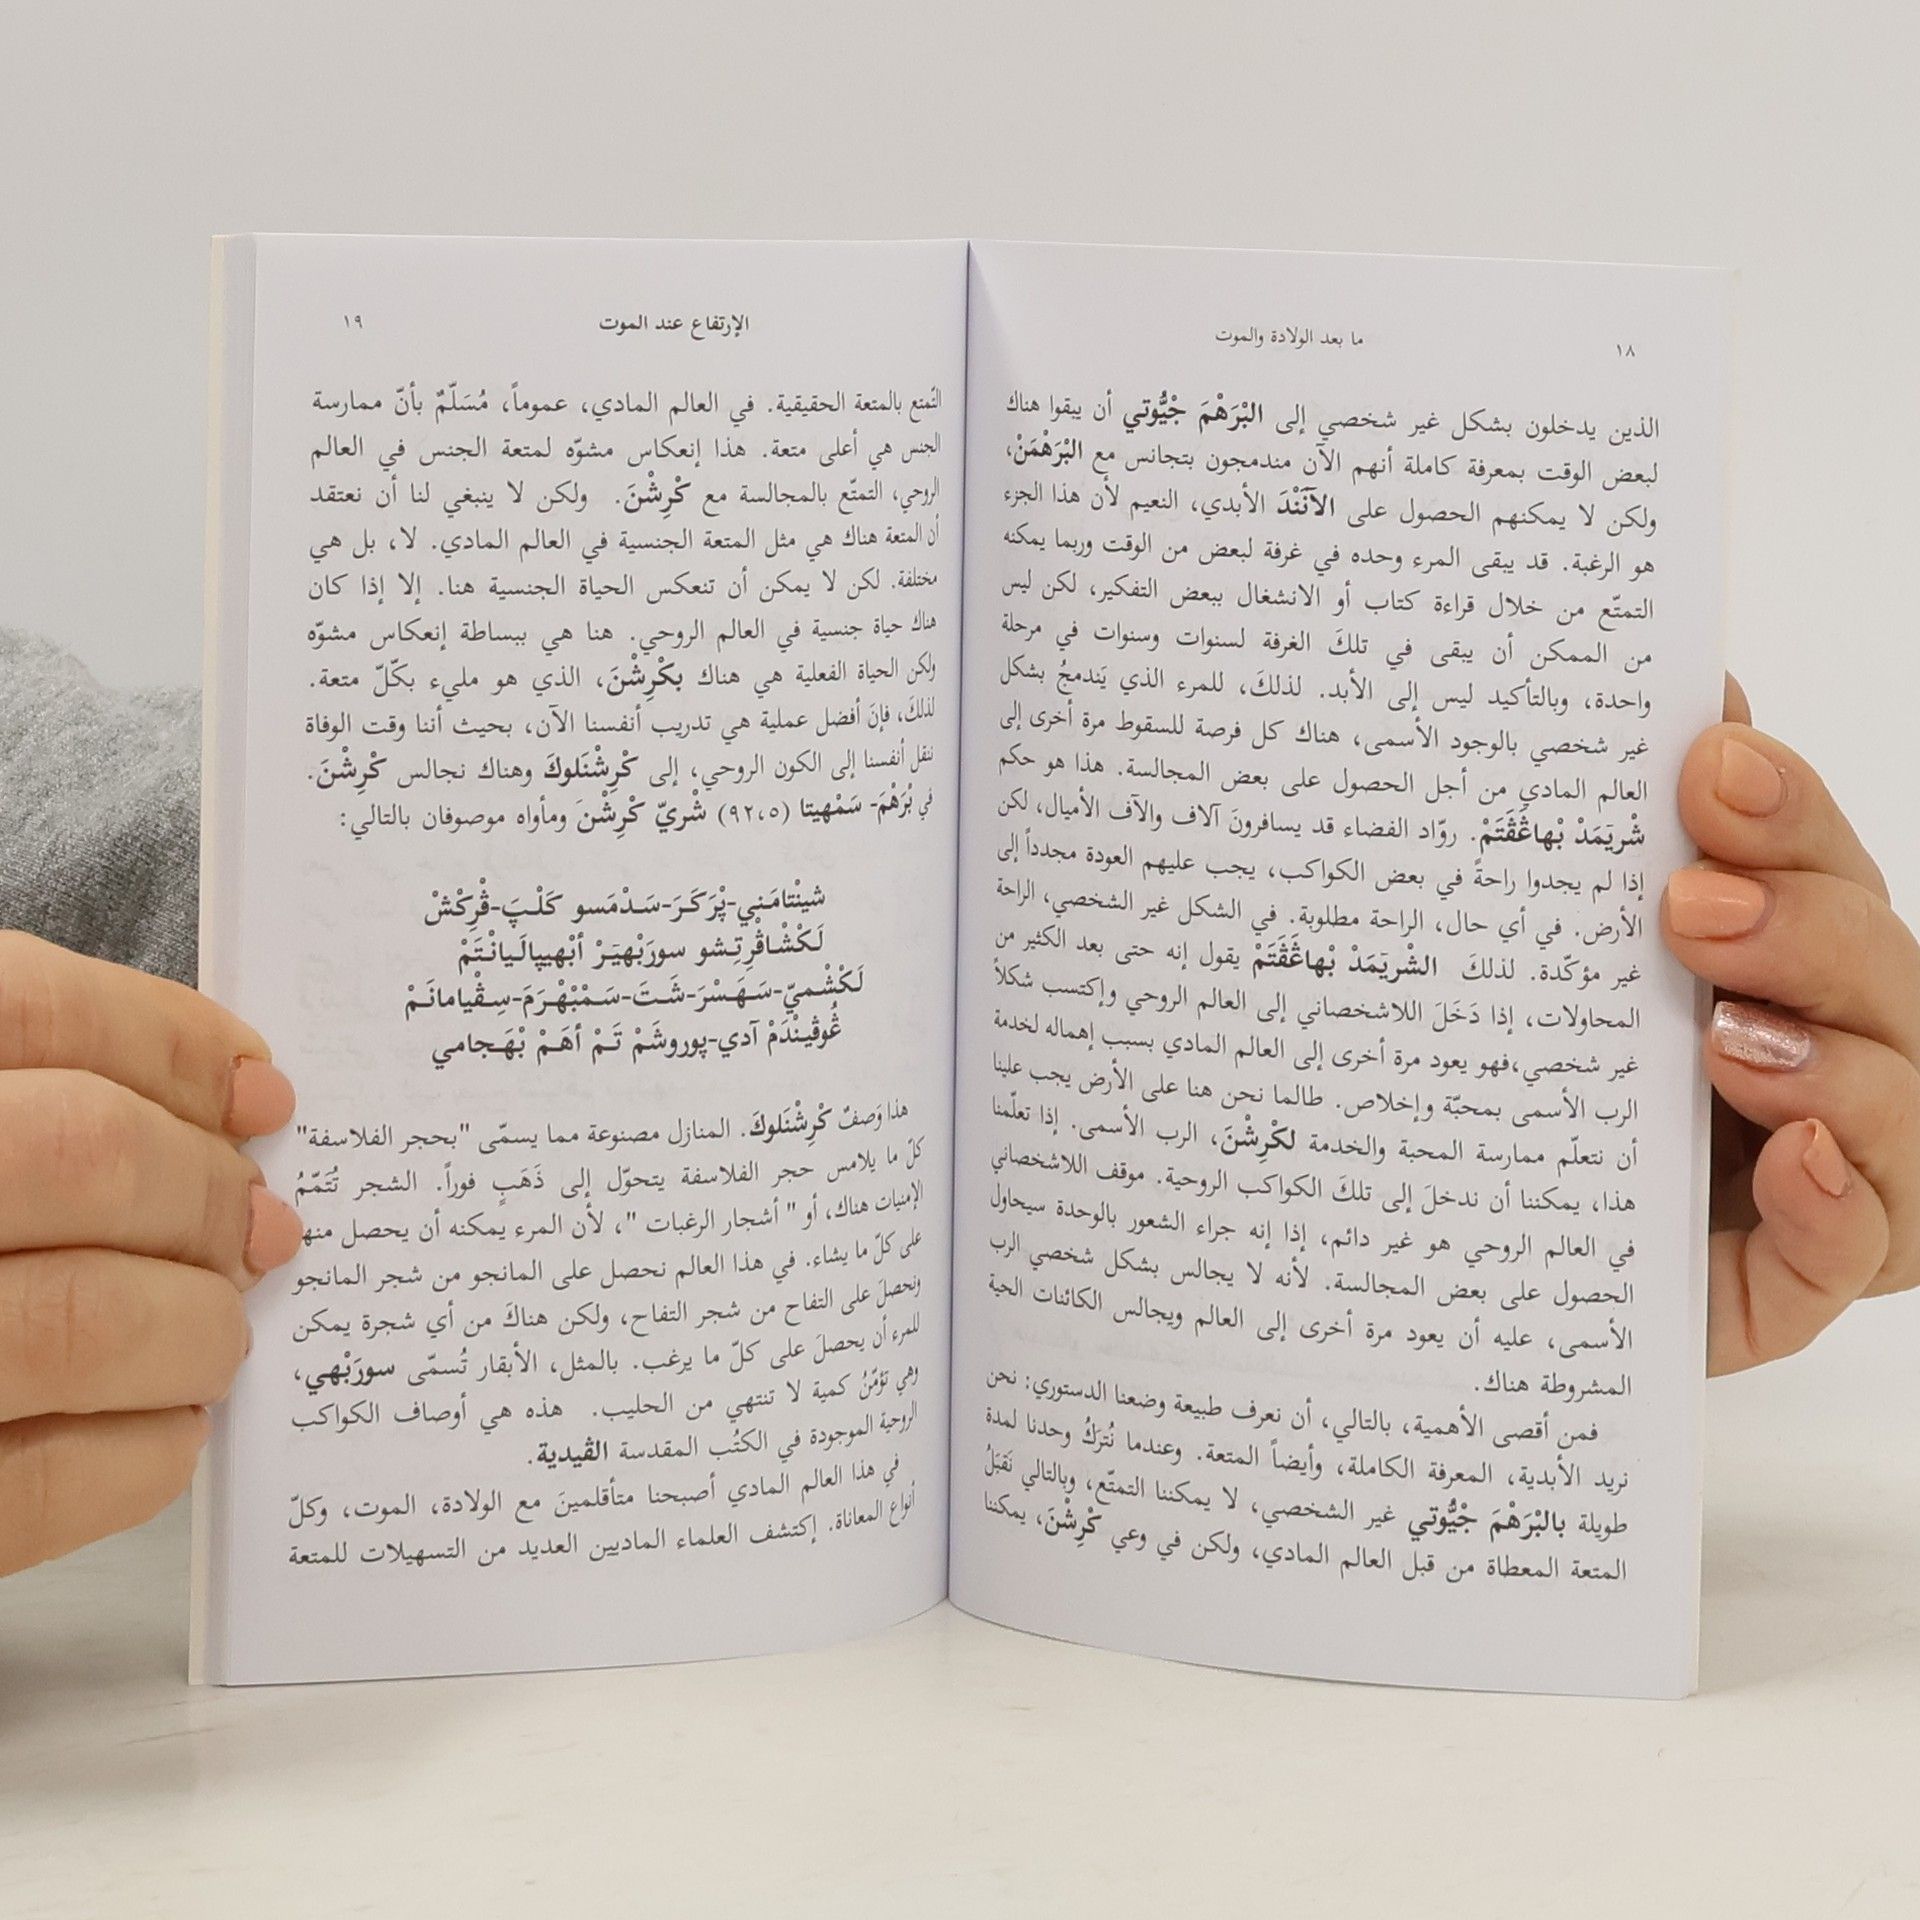 ١٨
ما بعد الولادة والموت
الذين يدخلون بشكل غير شخصي إلى البْرَهْمَ جْيُّوتي أن يبقوا هناك
لبعض الوقت بمعرفة كاملة أنهم الآن مندمجون بتجانس مع البْرَهْمَنْ،
ولكن لا يمكنهم الحصول على الآنَنْدَ الأبدي، النعيم لأن هذا الجزء
هو الرغبة. قد يبقى المرء وحده في غرفة لبعض من الوقت وربما يمكنه
التمتّع من خلال قراءة كتاب أو الانشغال ببعض التفكير، لكن ليس
من الممكن أن يبقى في تلكَ الغرفة لسنوات وسنوات في مرحلة
واحدة، وبالتأكيد ليس إلى الأبد. لذلكَ، للمرء الذي يَندمجُ بشكل
غير شخصي بالوجود الأسمى، هناك كل فرصة للسقوط مرة أخرى إلى
العالم المادي من أجل الحصول على بعض المجالسة. هذا هو حكم
شْريَمَدْ بْهاڠَڤَتَمْ. روّاد الفضاء قد يسافرونَ آلاف والآف الأميال، لكن
إذا لم يجدوا راحةً في بعض الكواكب، يجب عليهم العودة مجدداً إلى
الأرض. في أي حال، الراحة مطلوبة. في الشكل غير الشخصي، الراحة
غير مؤكّدة. لذلكَ الشْريَمَدْ بْهاڠَڤَتَمْ يقول إنه حتى بعد الكثير من
المحاولات، إذا دَخَلَ اللاشخصاني إلى العالم الروحي وإكتسب شكلاً
غير شخصي،فهو يعود مرة أخرى إلى العالم المادي بسبب إهماله لخدمة
الرب الأسمى بمحبّة وإخلاص. طالما نحن هنا على الأرض يجب علينا
أن نتعلّم ممارسة المحبة والخدمة لكْرِشْنَ، الرب الأسمى. إذا تعلّمنا
هذا، يمكننا أن ندخلَ إلى تلكَ الكواكب الروحية. موقف اللاشخصاني
في العالم الروحي هو غير دائم، إذا إنه جراء الشعور بالوحدة سيحاول
الحصول على بعض المجالسة. لأنه لا يجالس بشكل شخصي الرب
الأسمى، عليه أن يعود مرة أخرى إلى العالم ويجالس الكائنات الحية
المشروطة هناك.
فمن أقصى الأهمية، بالتالي، أن نعرف طبيعة وضعنا الدستوري: نحن
نريد الأبدية، المعرفة الكاملة، وأيضاً المتعة. وعندما نُترَكُ وحدنا لمدة
طويلة بالبْرَهْمَ جْيُّوتي غير الشخصي، لا يمكننا التمتّع، وبالتالي نَقبَلُ
المتعة المعطاة من قبل العالم المادي، ولكن في وعي كْرِشْنَ، يمكننا
الإرتفاع عند الموت
١٩
التّمتع بالمتعة الحقيقية. في العالم المادي، عموماً، مُسَلّمٌ بأنّ ممارسة
الجنس هي أعلى متعة. هذا إنعكاس مشوّه لمتعة الجنس في العالم
الروحي، التمتّع بالمجالسة مع كْرِشْنَ. ولكن لا ينبغي لنا أن نعتقد
أن المتعة هناك هي مثل المتعة الجنسية في العالم المادي. لا، بل هي
مختلفة. لكن لا يمكن أن تنعكس الحياة الجنسية هنا. إلا إذا كان
هناك حياة جنسية في العالم الروحي. هنا هي ببساطة إنعكاس مشوّه
ولكن الحياة الفعلية هي هناك بكْرِشْنَ، الذي هو مليء بكّلّ متعة.
لذلكَ، فإنَ أفضل عملية هي تدريب أنفسنا الآن، بحيث أننا وقت الوفاة
ننقل أنفسنا إلى الكون الروحي، إلى كْرِشْنَلوكَ وهناك نجالس كْرِشْنَ.
في بْرَهْمَ- سَمْهيتا (٩٢،٥) شْريّ كْرِشْنَ ومأواه موصوفان بالتالي:
شينْتامَني-پْرَكَرَ-سَدْمَسو كَلْپَ-ڤْرِكْشْ
لَكْشْاڤْرِتِشو سورَبْهيَرْ أبْهيپالَيانْتَمْ
لَكْشْميّ-سَهَسْرَ-شَتَ-سَمْبْهْرَمَ-سِڤْيامانَمْ
ڠُوڤينْدَمْ آدي-پوروشَمْ تَمْ أهَمْ بْهَجامي
هذا وَصفٌ كْرِشْنَلوكَ. المنازل مصنوعة مما يسمّى "بحجر الفلاسفة"
كلّ ما يلامس حجر الفلاسفة يتحوّل إلى ذَهَبٍ فوراً. الشجر تُتَمّمُ
الإمنيات هناك، أو " أشجار الرغبات "، لأن المرء يمكنه أن يحصل منها
على كلّ ما يشاء. في هذا العالم نحصل على المانجو من شجر المانجو
ونحصلَ على التفاح من شجر التفاح، ولكن هناكَ من أي شجرة يمكن
للمرء أن يحصلَ على كلّ ما يرغب. بالمثل، الأبقار تُسمّى سورَبْهي،
وهي تَؤمّنُ كمية لا تنتهي من الحليب. هذه هي أوصاف الكواكب
الروحية الموجودة في الكتُب المقدسة الڤيدية.
في هذا العالم المادي أصبحنا متأقلمينَ مع الولادة، الموت، وكلّ
أنواع المعاناة. إكتشف العلماء الماديين العديد من التسهيلات للمتعة